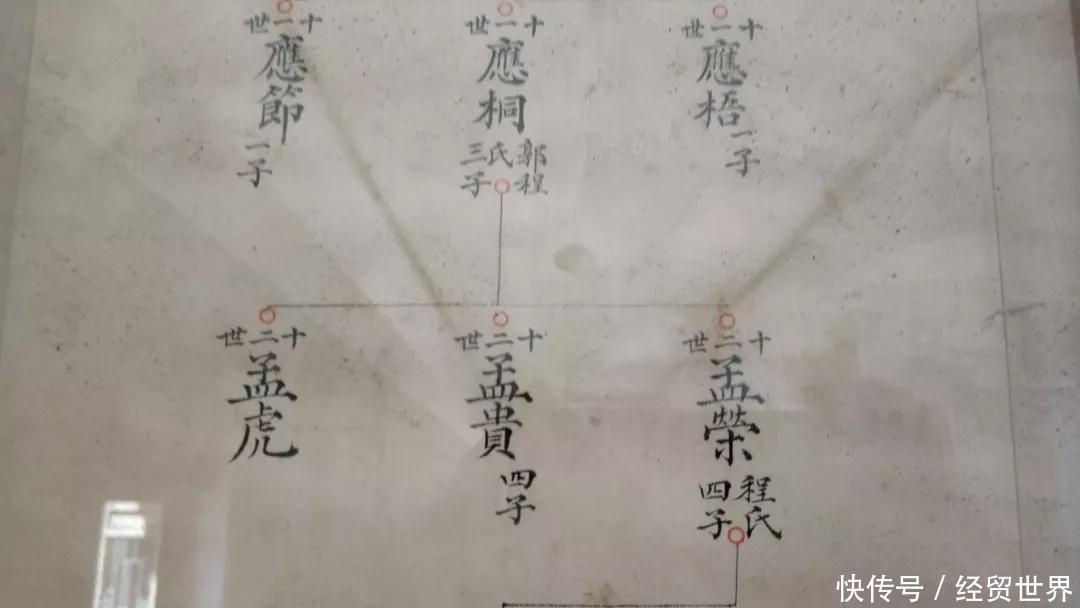 十一世
應梧
一子
十一世
應桐
郭程氏
三子
十一世
應節
一子
十二世
孟榮
程氏
四子
十二世
孟貴
四子
十二世
孟虎
快传号 / 经贸世界